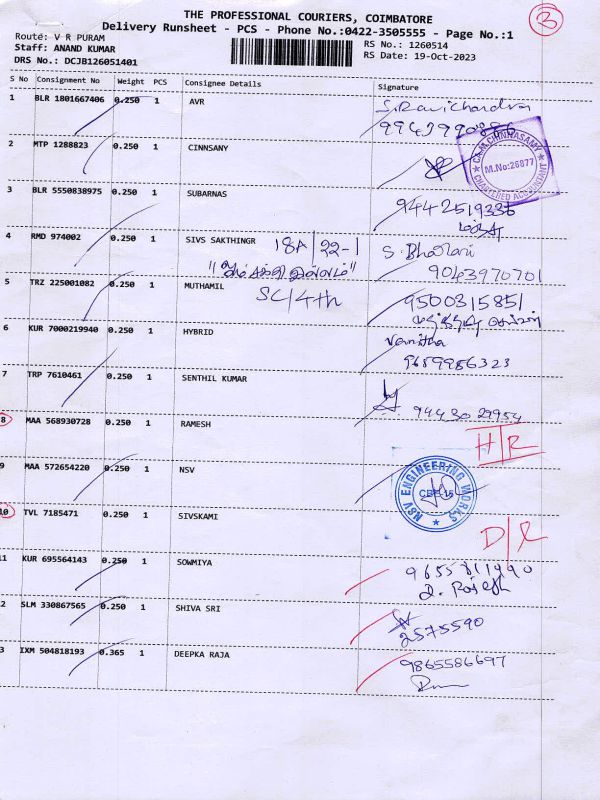 THE PROFESSIONAL COURIERS, COIMBATORE
Delivery Runsheet - PCS - Phone No.:0422-3505555 - Page No.:1
3
Route: V R PURAM
RS No.: 1260514
Staff: ANAND KUMAR
RS Date: 19-Oct-2023
DRS No.: DCJB126051401
S No Consignment No Weight PCS Consignee Details Signature
1 BLR 1801667406 0.250 1 AVR S.Ravichandran
2 MTP 1288823 0.250 1 CINNSANY
CA.M.CHINNASAMY
M.No:26877
CHARTERED ACCOUNTANT
3 BLR 5550838975 0.250 1 SUBARNAS 9442519336
4 RMD 974002 0.250 1 SIVS SAKTHINGR 18A/22-1 S. Bharani
9043970701
5 TRZ 225001082 0.250 1 MUTHAMIL SC/4th 9500315851
6 KUR 7000219940 0.250 1 HYBRID Vanitha
9659986323
7 TRP 7610461 0.250 1 SENTHIL KUMAR
94430 29954
8 MAA 568930728 0.250 1 RAMESH H/R
9 MAA 572654220 0.250 1 NSV
NSV ENGINEERING WORKS
CBE-15
10 TVL 7185471 0.250 1 SIVSKAMI D/L
11 KUR 695564143 0.250 1 SOWMIYA 9655811990
d. Rajesh
2 SLM 330867565 0.250 1 SHIVA SRI
2575590
3 IXM 504818193 0.365 1 DEEPKA RAJA 9865586697